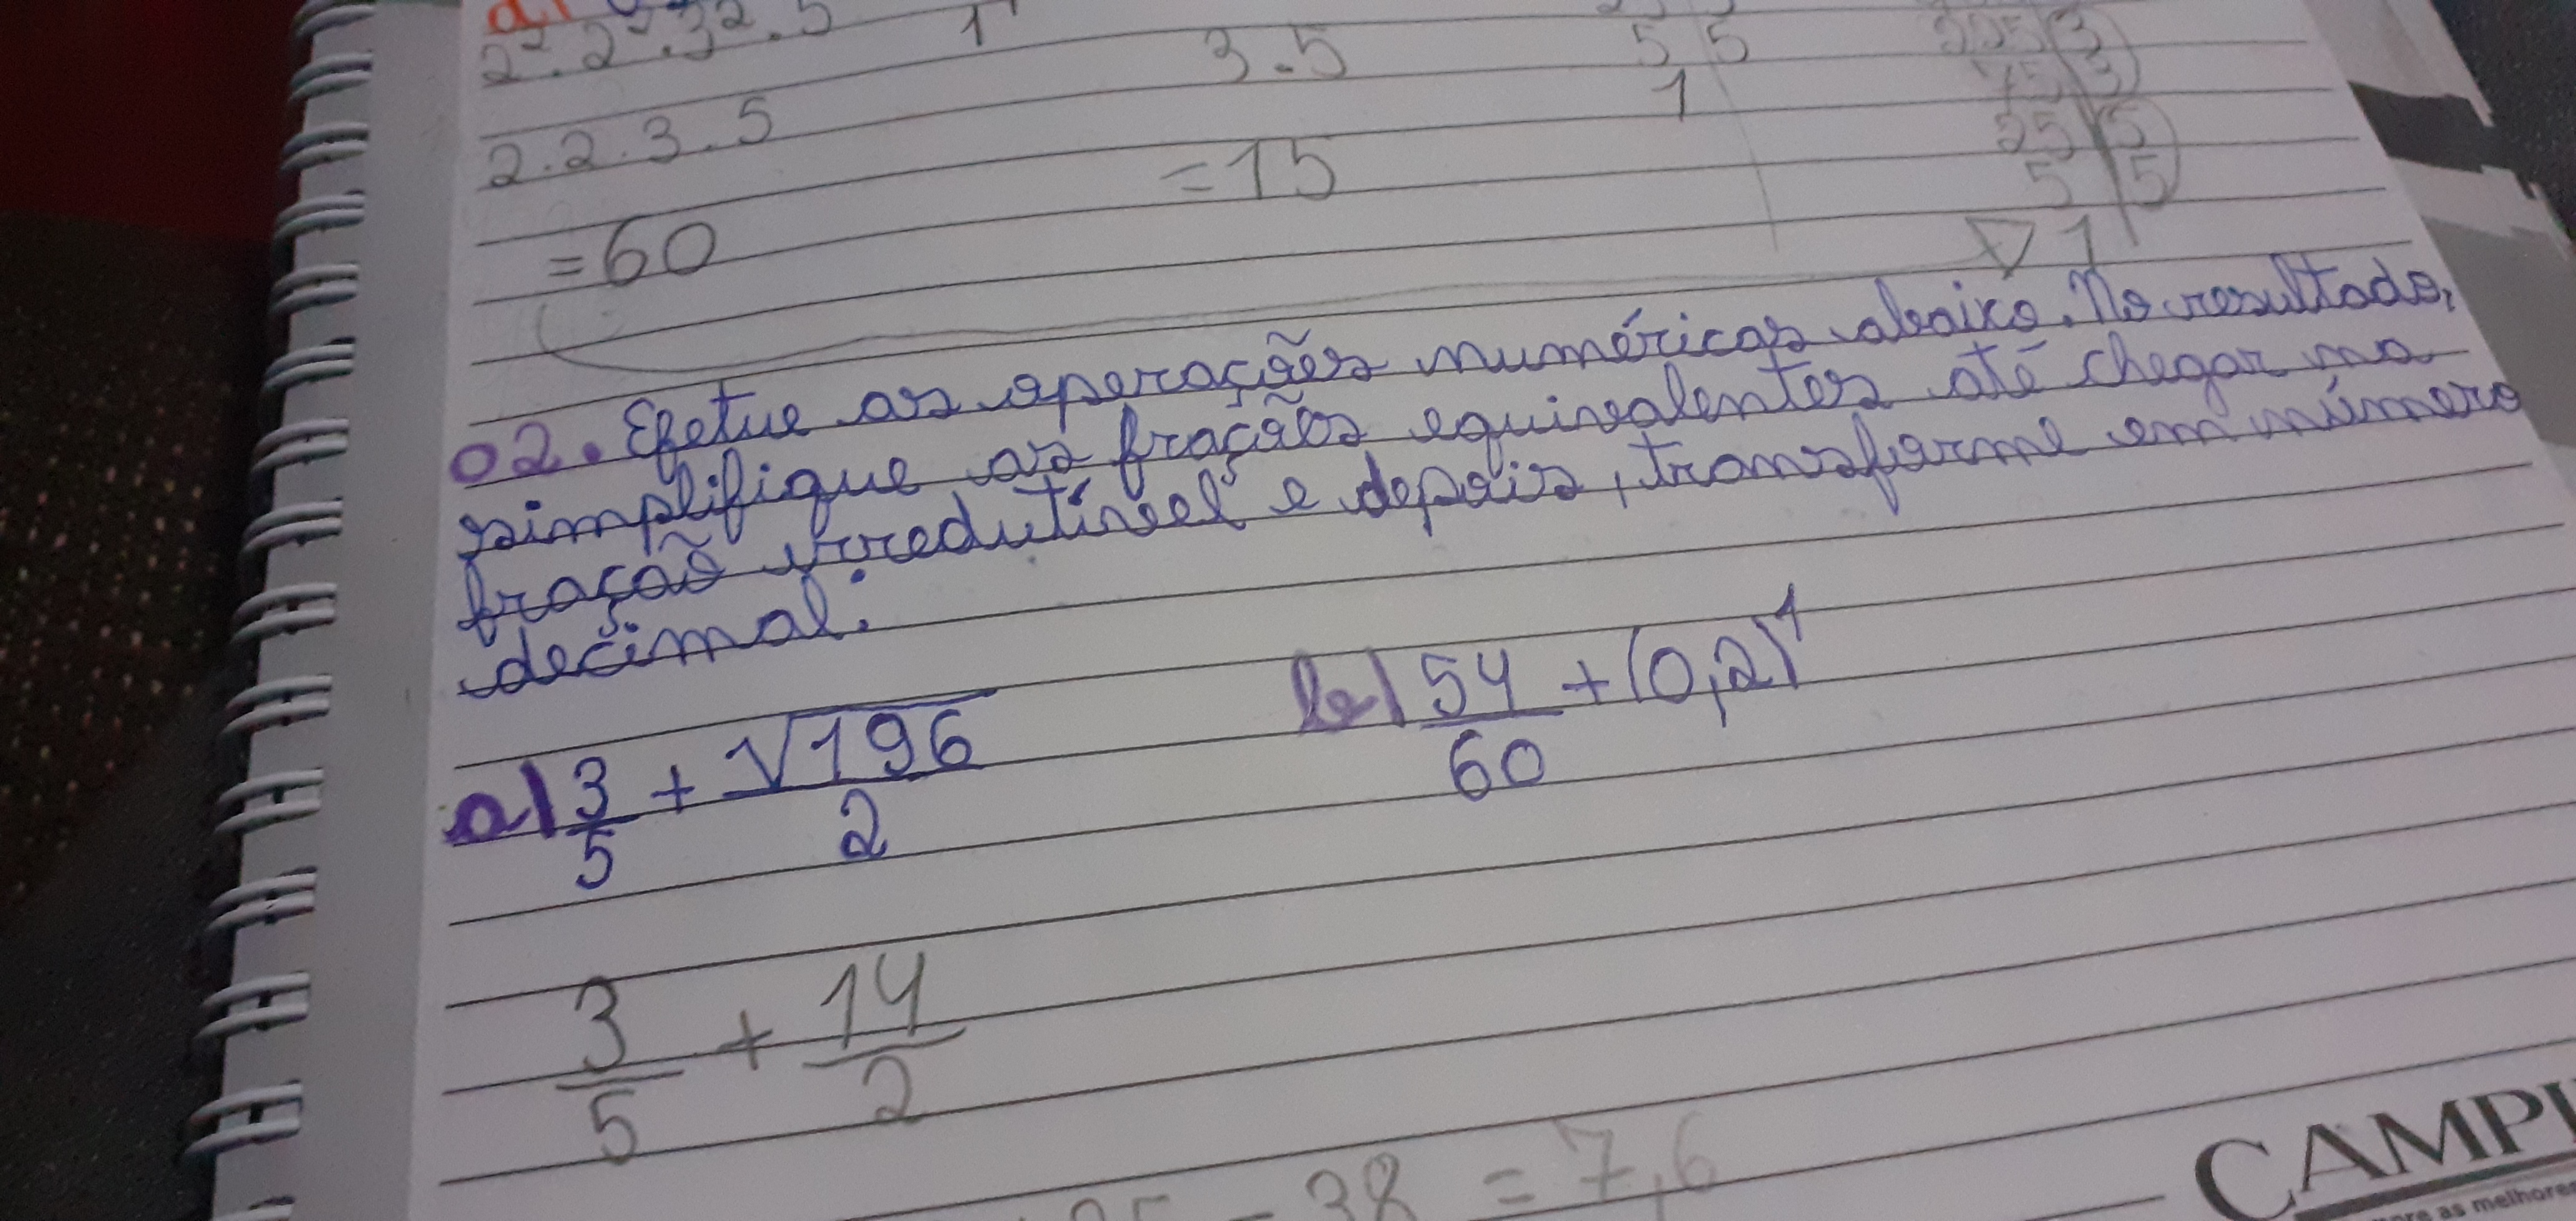 2² . 2² . 3² . 5
1
3 . 5
5 5
1
225 3
75 3
25 5
5 5
1
2 . 2 . 3 . 5
= 15
= 60
02. Efetue as operações numéricas abaixo. No resultado,
simplifique as frações equivalentes até chegar na
fração irredutível e depois, transforme em número
decimal.
a) 3/5 + √196/2
b) 54/60 + (0,2)¹
3/5 + 14/2
38 = 7,6
CAMPI
as melhores